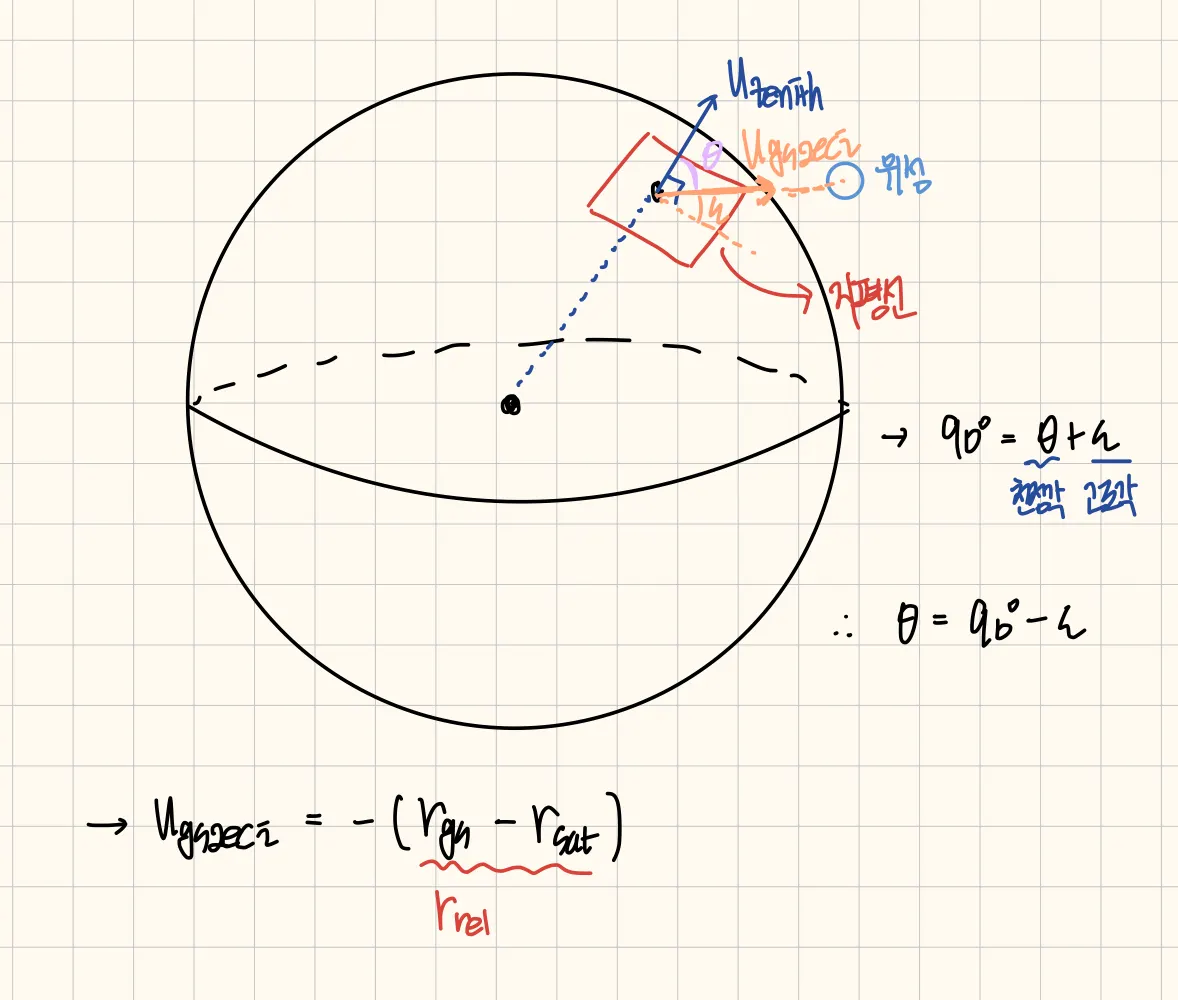 u_zenith
θ
u_gs2eci
위성
h
지평선
→ 90° = θ + h
천정각 고도각
∴ θ = 90° - h
→ u_gs2eci = - (r_gs - r_sat)
r_rel